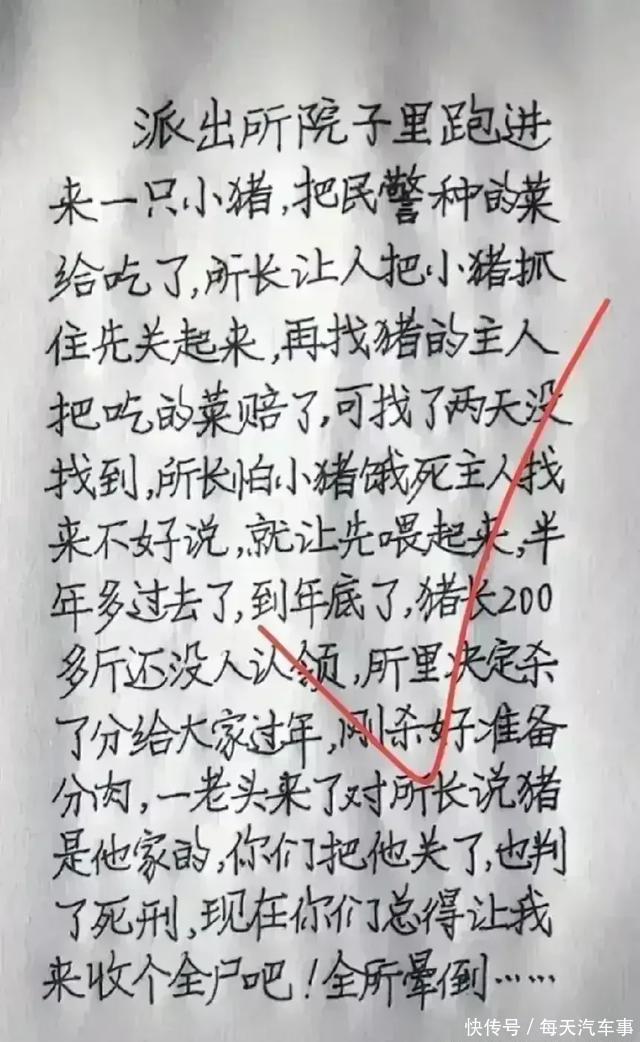 派出所院子里跑进
来一只小猪,把民警种的菜
给吃了,所长让人把小猪抓
住先关起来,再找猪的主人
把吃的菜赔了,可找了两天没
找到,所长怕小猪饿死主人找
来不好说,就让先喂起来,半
年多过去了,到年底了,猪长200
多斤还没人认领,所里决定杀
了分给大家过年,刚杀好准备
分肉,一老头来了对所长说猪
是他家的,你们把他关了,也判
了死刑,现在你们总得让我
来收个全尸吧!全所晕倒……
快传号/每天汽车事